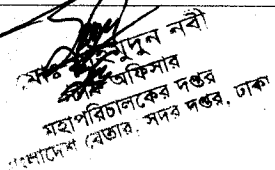 মুদুন নবী
অফিসার
মহাপরিচালকের দপ্তর
বাংলাদেশ বেতার, সদর দপ্তর, ঢাকা